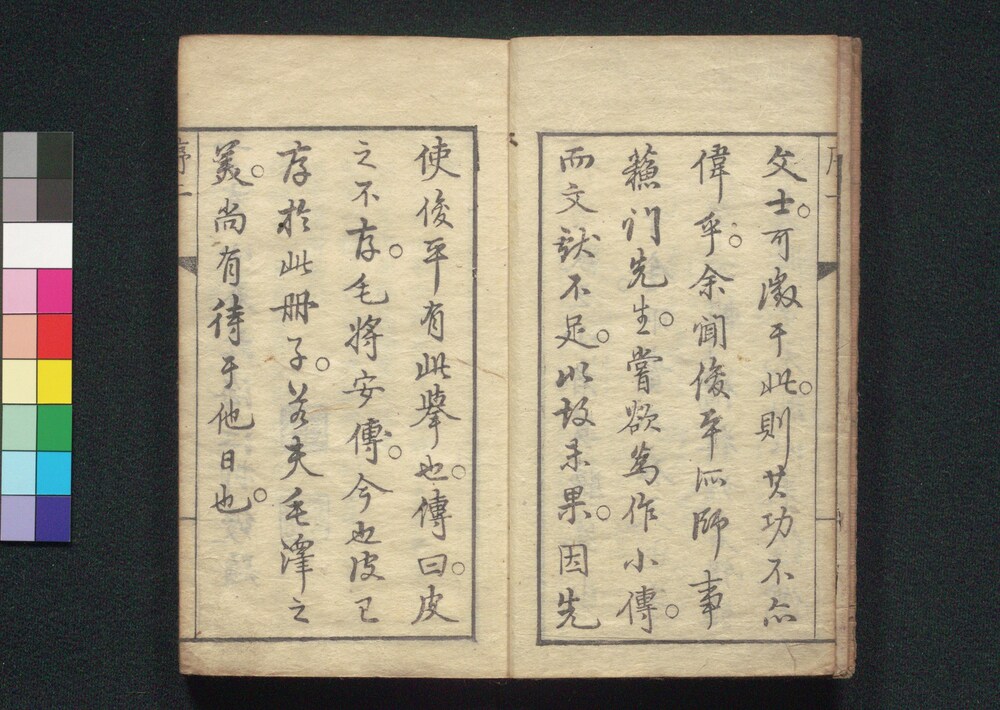 文士。可徵于此。則其功不亦
偉乎。余聞俊平所師事
蘓門先生。嘗欲為作小傳。
而文獻不足。以故未果。因先
使俊平有此擧也。傳曰。皮
之不存。毛將安傳。今也皮已
存於此冊子。若夫毛澤之
美。尚有待于他日也。
序二